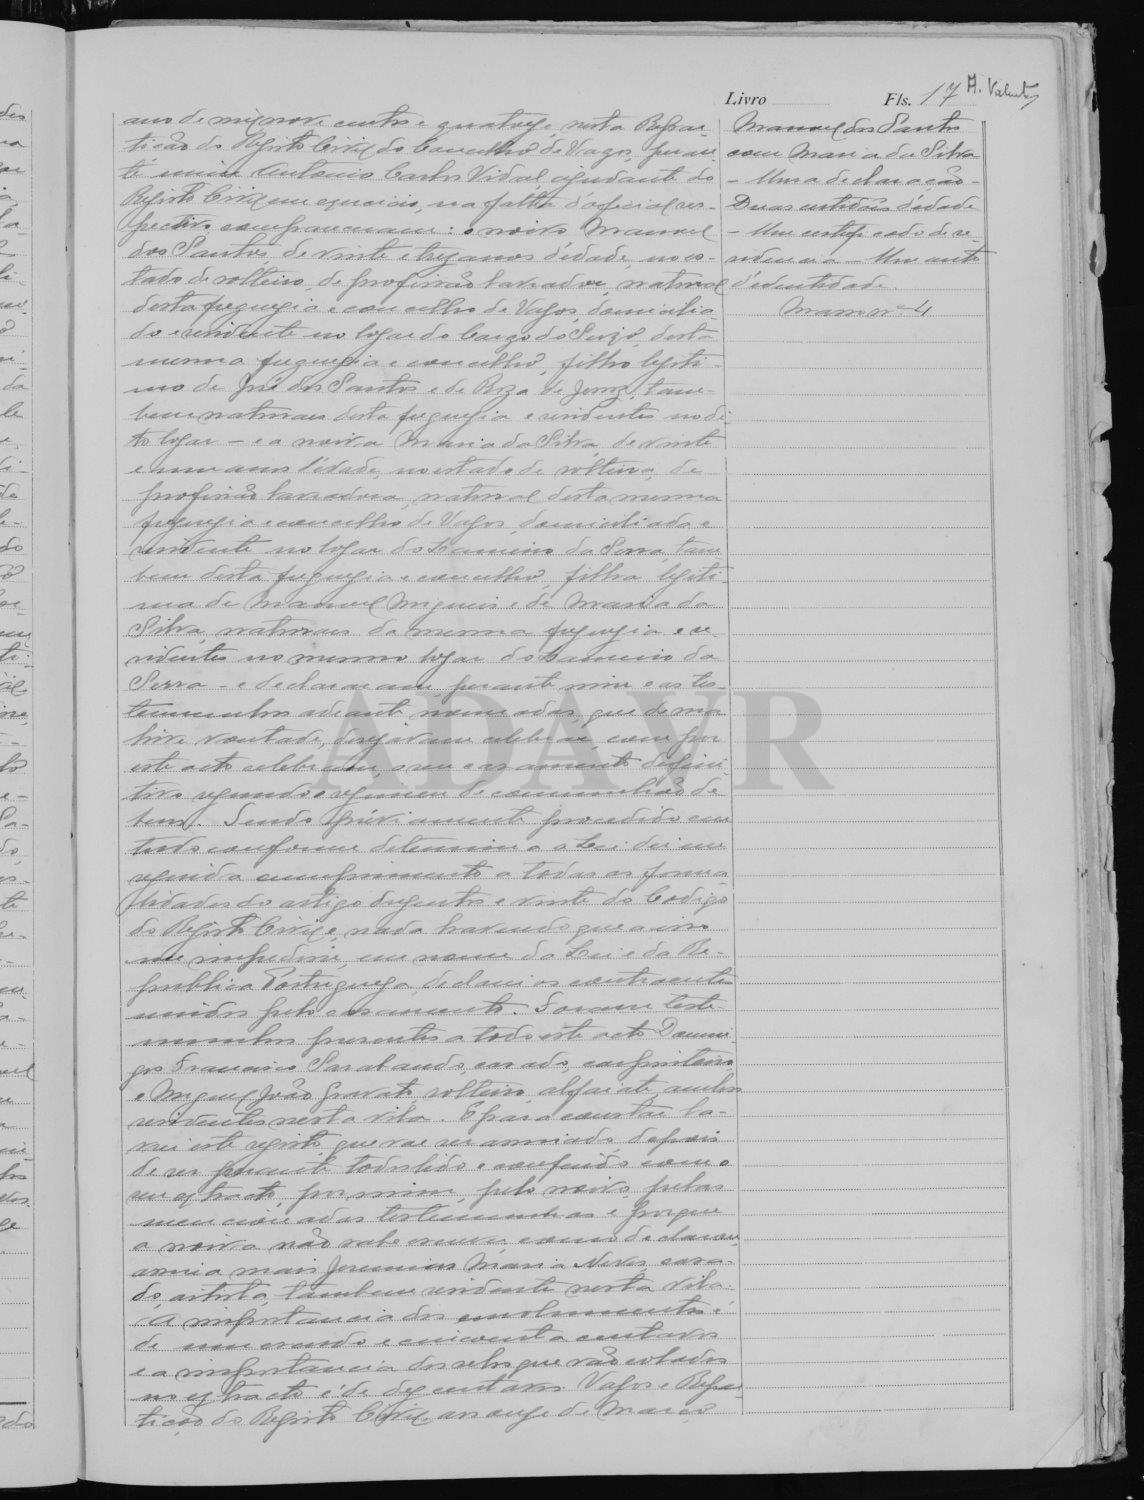 Livro
Fls. 17 A. Valente
ano de mil nove centos e quatorze, nesta Repar-
tição do Registo Civil do Concelho de Vagos, peran-
te mim Antonio Carlos Vidal, ajudante do
Registo Civil em exercicio, na falta d'oficial res-
pectivo compareceram: o noivo Manoel
dos Santos, de vinte e tres anos d'edade, no es-
tado de solteiro, de profissão lavrador, natural
desta freguezia e concelho de Vagos, domicilia-
do e residente no logar do da
mesma freguezia e concelho, filho legiti-
mo de José dos Santos e de Roza de Jesus, tam-
bem naturaes desta freguezia e residentes no di-
to logar - e a noiva Maria da Silva, de vinte
e um anos d'edade, no estado de solteira, de
profissão lavradora, natural desta mesma
freguezia e concelho de Vagos, domiciliada e
residente no logar do Lameiro da Serra, tam
bem desta freguezia e concelho, filha legiti-
ma de Manuel Migueis e de Maria da
Silva, naturaes da mesma freguezia e re-
sidentes no mesmo logar do Lameiro da
Serra - e declararam perante mim e as tes-
temunhas adiante nomeadas, que de sua
livre vontade, desejavam celebrar, como por
este acto celebram, o seu casamento defini-
tivo segundo o regimen de communhão de
bens. Sendo préviamente procedido em
tudo conforme determina a Lei dei em
seguida cumprimento a todas as forma
lidades do artigo duzentos e vinte do Codigo
do Registo Civil e, nada havendo que a isso
me impedisse, em nome da Lei e da Re-
publica Portugueza, declarei os contraentes
unidos pelo casamento. Foram teste-
munhas presentes a todo este acto Domin-
gos Francisco Sarabando, casado, carpinteiro
e Miguel João Gravato, solteiro, alfaiate, ambos
residentes nesta vila. E para constar la-
vrei este registo que vae ser assinado, depois
de ser perante todos lido e conferido com o
seu extracto, por mim, pelo noivo, pelas
mencionadas testemunhas e porque
a noiva não sabe escrever, como declarou,
assina mais Jeremias Maria Neves, casa-
do, artista, tambem residente nesta vila.
A importancia dos emolumentos é
de um escudo e cincoenta centavos
e a importancia dos selos que vão colados
no extracto é de dez centavos. Vagos e Repar
tição do Registo Civil, aos onze de Março
Manoel dos Santos
com Maria da Silva
- Uma declaração -
Duas certidões d'edade
- Um certificado de re-
sidencia - Um auto
d'identidade.
Masso nº 4
ADAVR